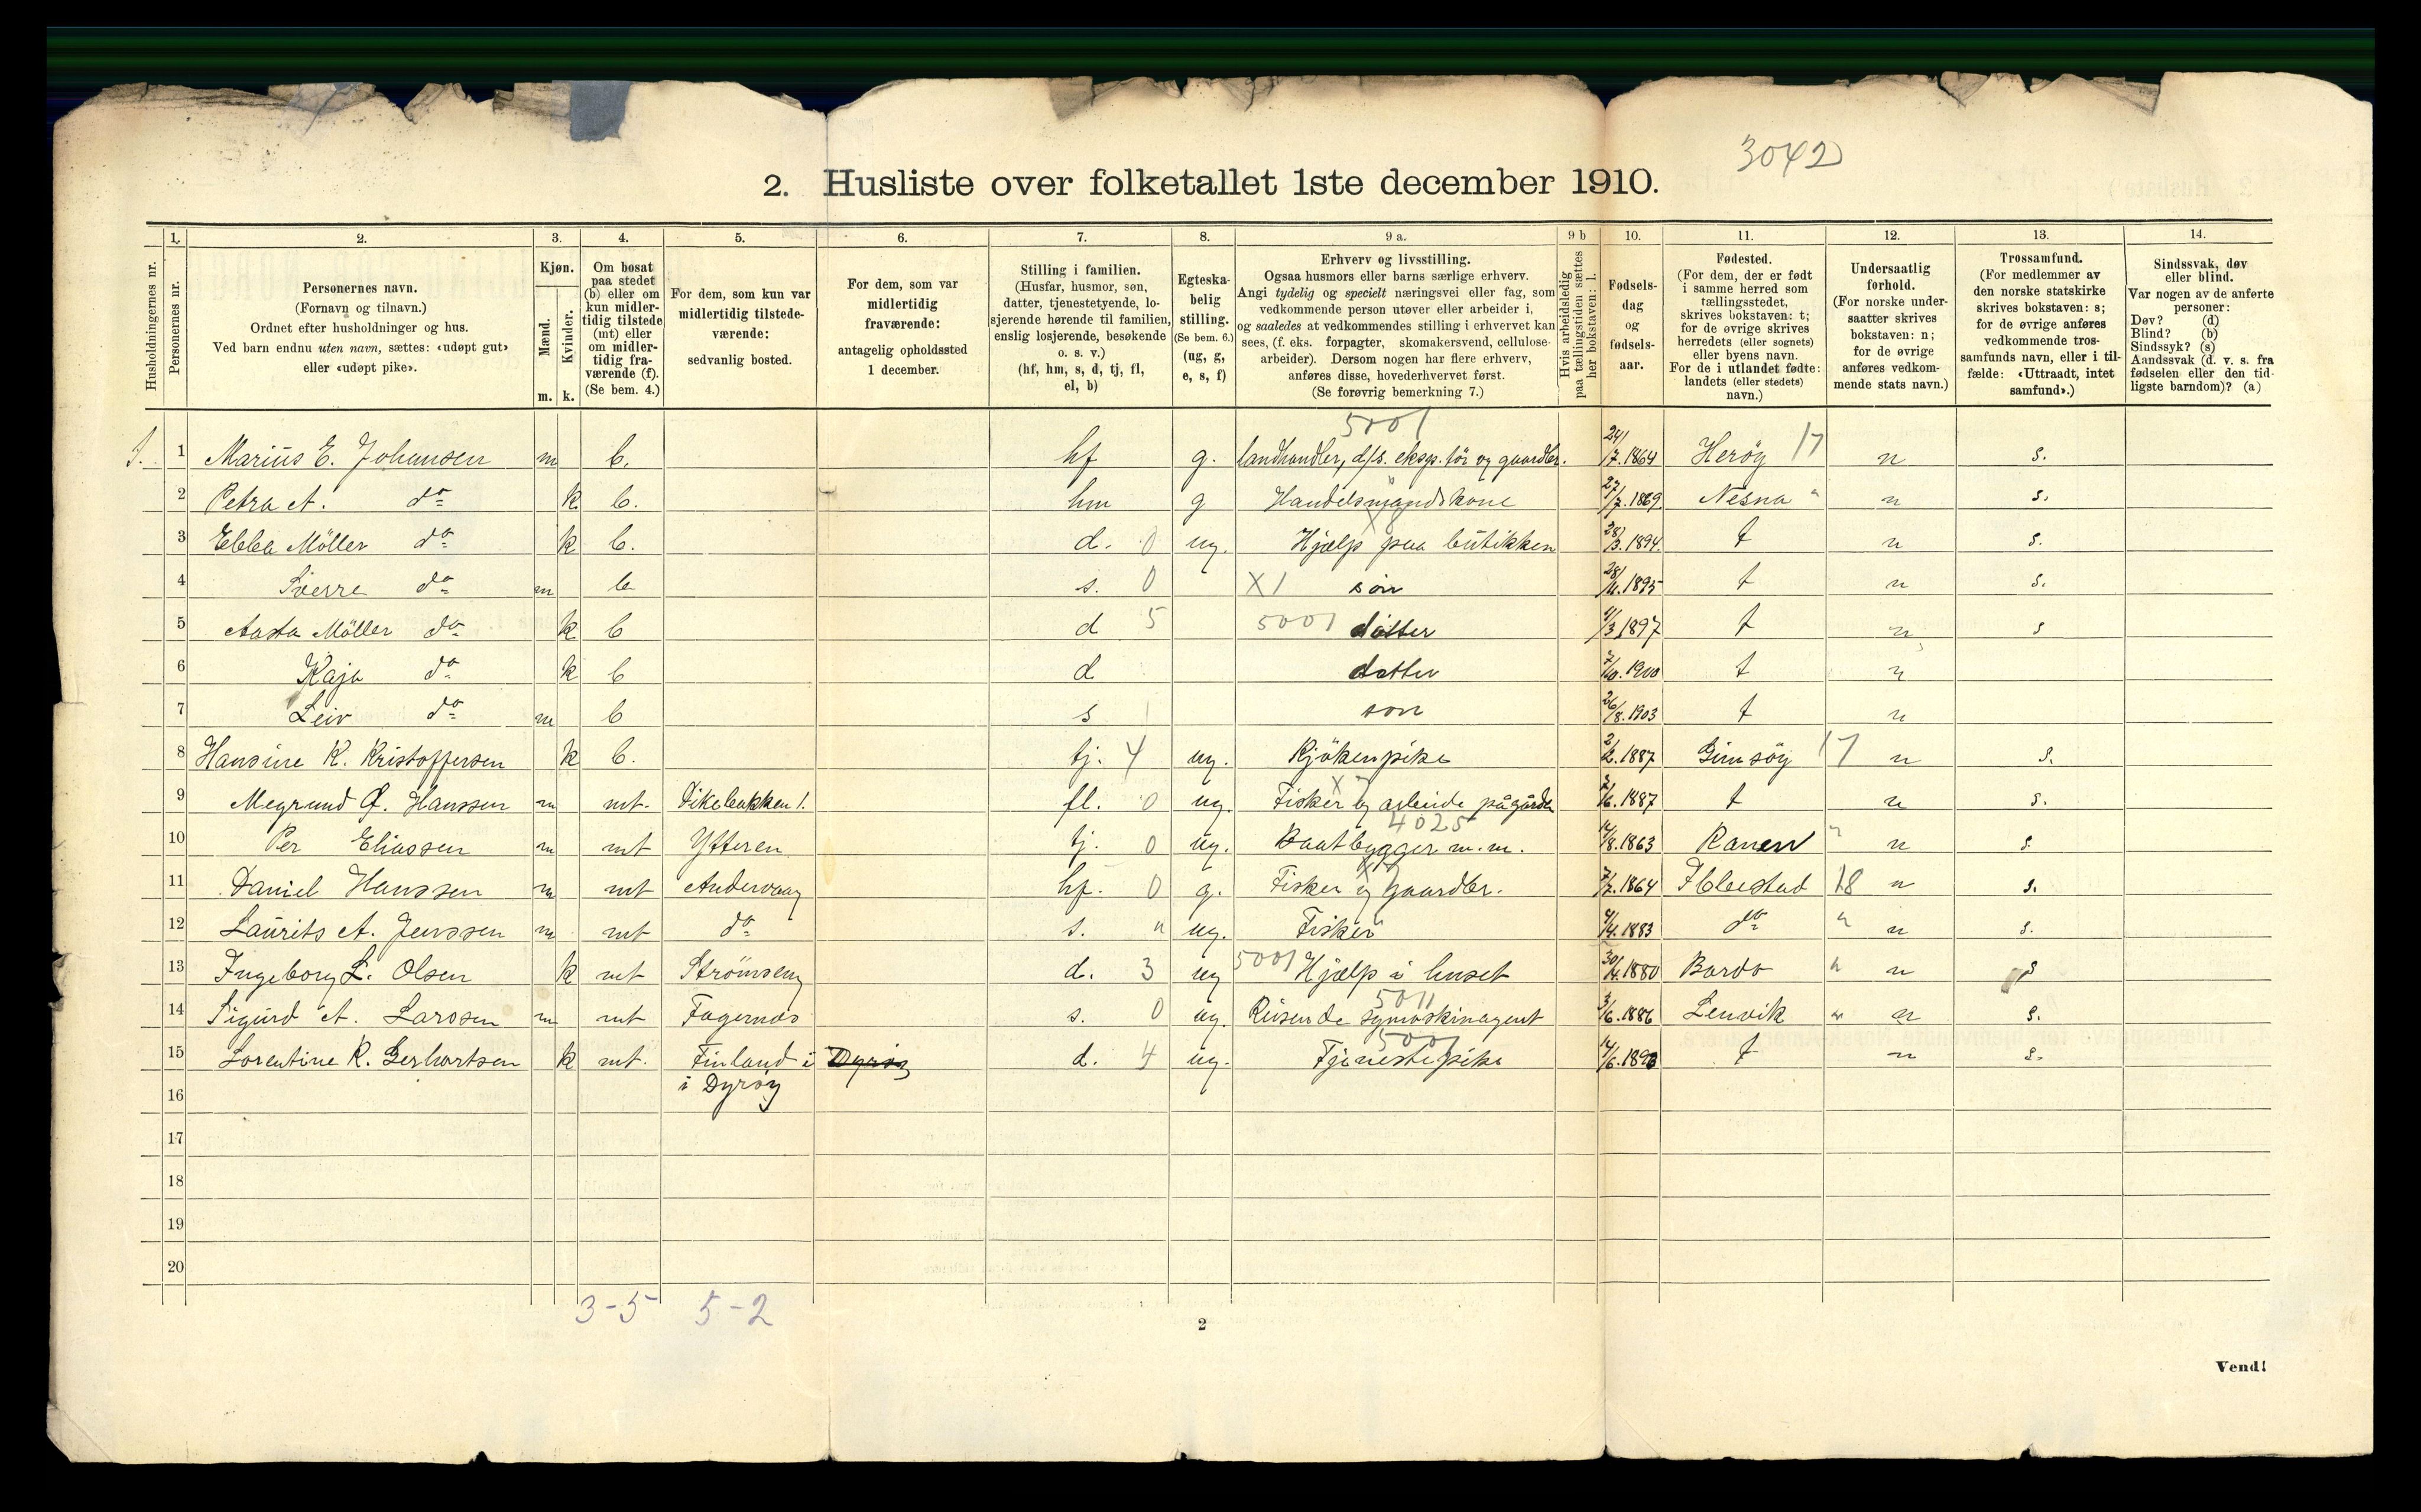 3042
2. Husliste over folketallet 1ste december 1910.
Husholdningernes nr.
1. Personernes nr.
2. Personernes navn.
(Fornavn og tilnavn.)
Ordnet efter husholdninger og hus.
Ved barn endnu uten navn, sættes: «udøpt gut»
eller «udøpt pike».
3. Kjøn.
Mænd. Kvinder.
m. k.
4. Om bosat
paa stedet
(b) eller om
kun midler-
tidig tilstede
(mt) eller
om midler-
tidig fra-
værende (f).
(Se bem. 4.)
5. For dem, som kun var
midlertidig tilstede-
værende:
sedvanlig bosted.
6. For dem, som var
midlertidig
fraværende:
antagelig opholdssted
1 december.
7. Stilling i familien.
(Husfar, husmor, søn,
datter, tjenestetyende, lo-
sjerende hørende til familien,
enslig losjerende, besøkende
o. s. v.)
(hf, hm, s, d, tj, fl,
el, b)
8. Egteska-
belig
stilling.
(Se bem. 6.)
(ug, g,
e, s, f)
9 a. Erhverv og livsstilling.
Ogsaa husmors eller barns særlige erhverv.
Angi tydelig og specielt næringsvei eller fag, som
vedkommende person utøver eller arbeider i,
og saaledes at vedkommendes stilling i erhvervet kan
sees, (f. eks. forpagter, skomakersvend, cellulose-
arbeider). Dersom nogen har flere erhverv,
anføres disse, hovederhvervet først.
(Se forøvrig bemerkning 7.)
9 b Hvis arbeidsledig
paa tællingstiden sættes
her bokstaven: l.
10. Fødsels-
dag
og
fødsels-
aar.
11. Fødested.
(For dem, der er født
i samme herred som
tællingsstedet,
skrives bokstaven: t;
for de øvrige skrives
herredets (eller sognets)
eller byens navn.
For de i utlandet fødte:
landets (eller stedets)
navn.)
12. Undersaatlig
forhold.
(For norske under-
saatter skrives
bokstaven: n;
for de øvrige
anføres vedkom-
mende stats navn.)
13. Trossamfund.
(For medlemmer av
den norske statskirke
skrives bokstaven: s;
for de øvrige anføres
vedkommende tros-
samfunds navn, eller i til-
fælde: «Uttraadt, intet
samfund».)
14. Sindssvak, døv
eller blind.
Var nogen av de anførte
personer:
Døv? (d)
Blind? (b)
Sindssyk? (s)
Aandssvak (d. v. s. fra
fødselen eller den tid-
ligste barndom)? (a)
5001
1. 1 Marius E. Johansen m b. hf g. landhandler, d/s. eksp.tör og gaardbr. 24/7.1864 Heröy 17 n s.
2 Petra A. do k b. hm g Handelsmandskone 27/7.1869 Nesna " n s.
3 Ebba Möller do k b. d. 0 ug. Hjælp paa butikken 28/3.1894 t n s.
4 Sverre do m b s. 0 X1 sön 28/11.1895 t n s.
5 Aasta Möller do k b d 5 5001 datter 1/3 1897 t n s
6 Kaja do k b d datter 7/10.1900 t n
7 Leiv do m b s sön 26/8.1903 t n
8 Hansine K. Kristoffersen k b. tj. 4 ug. Kjökenpike 2/2.1887 Gimsöy 17 n s.
9 Megrund O. Hanssen m mt. Dikebakken 1. fl. 0 ug. Fisker og arbeide på gården 7/6.1887 t n s.
4025
10 Per Eliassen m mt Ytteren tj. 0 ug. Baatbygger m.m. 14/8.1863 Ranen " n s.
11 Daniel Hanssen m mt Andervaag hf. 0 g. Fisker og gaardbr. 7/7.1864 Ibbestad 18 n s.
12 Laurits A. Jenssen m mt do s. " ug. Fisker 9/4.1883 do " n s.
13 Ingeborg L. Olsen k mt Strömseng d. 3 ug 5001 Hjælp i huset 30/4.1880 Bardo " n s
5011
14 Sigurd A. Larssen m mt Fagernes s. 0 ug. Reisende symaskinagent 3/6.1886 Lenvik " n s.
5001
15 Lorentine R. Gerhartsen k mt. Finland i Dyröy d. 4 ug. Tjenestepike 14/6.1890 t n s.
16 i Dyröy
17
18
19
20
3-5 5-2
2
Vend!